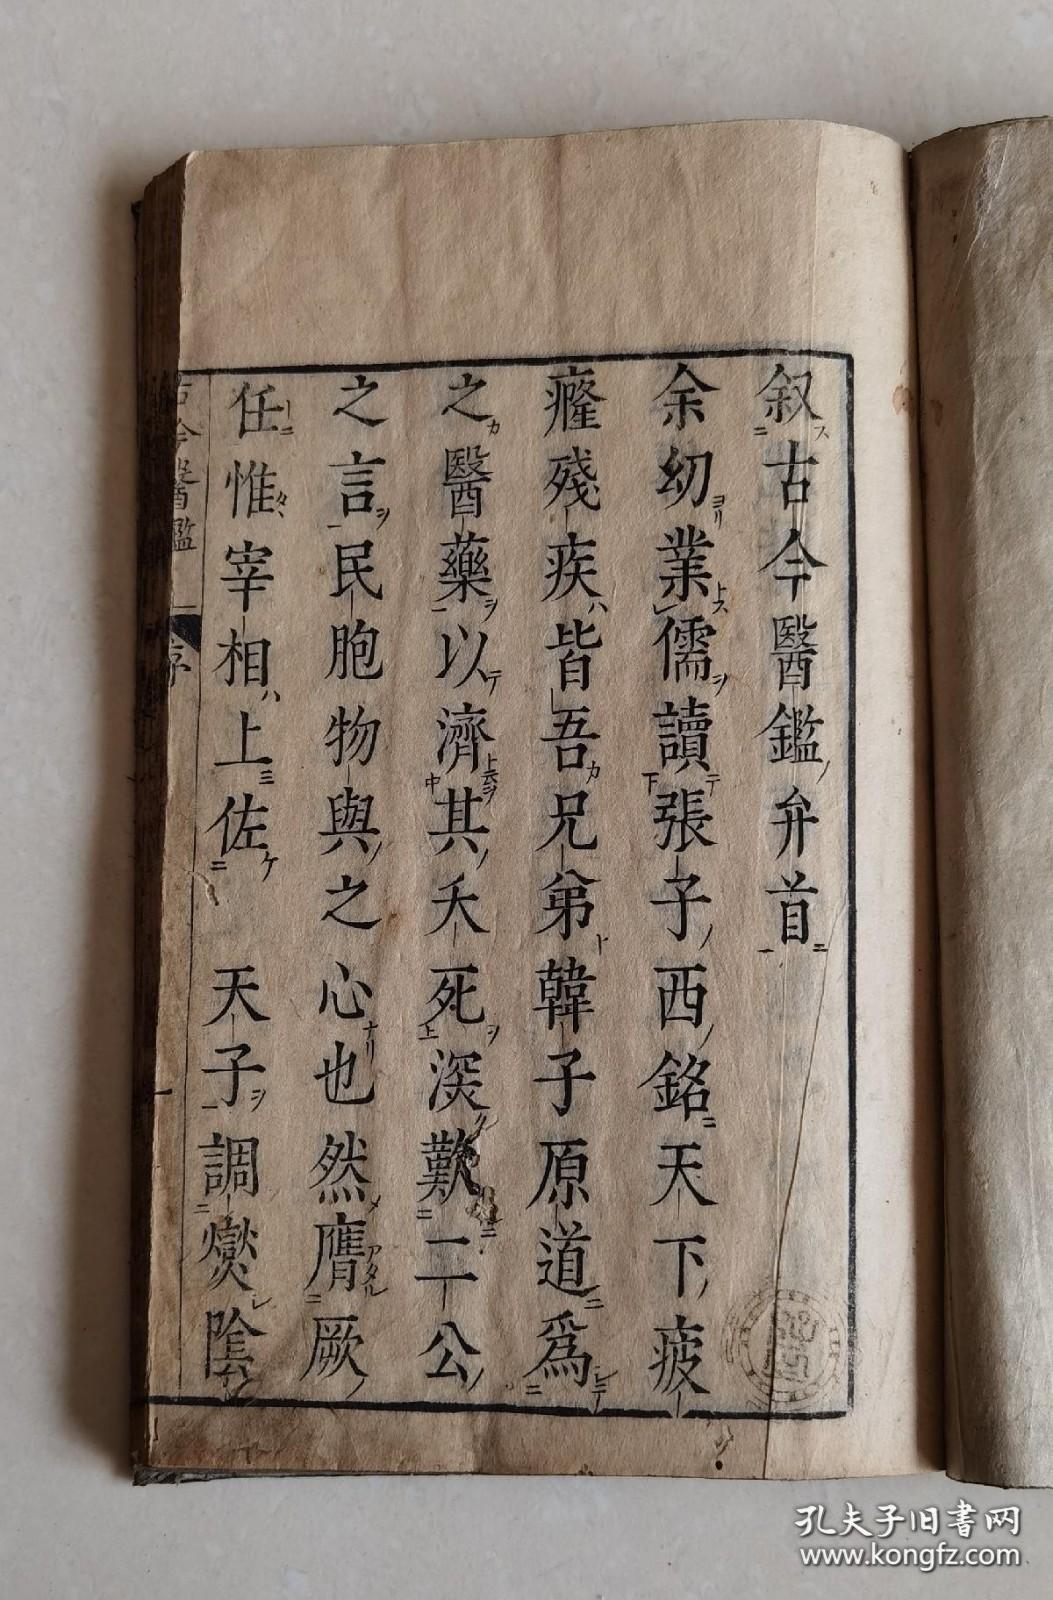 叙古今醫鑑弁首
余幼業儒讀張子西銘天下疲
癃殘疾皆吾兄弟韓子原道為
之醫藥以濟其夭死深歎二公
之言民胞物與之心也然膺厥
任惟宰相上佐 天子調燮陰
古今醫鑑 序 一
孔夫子旧書网
www.kongfz.com